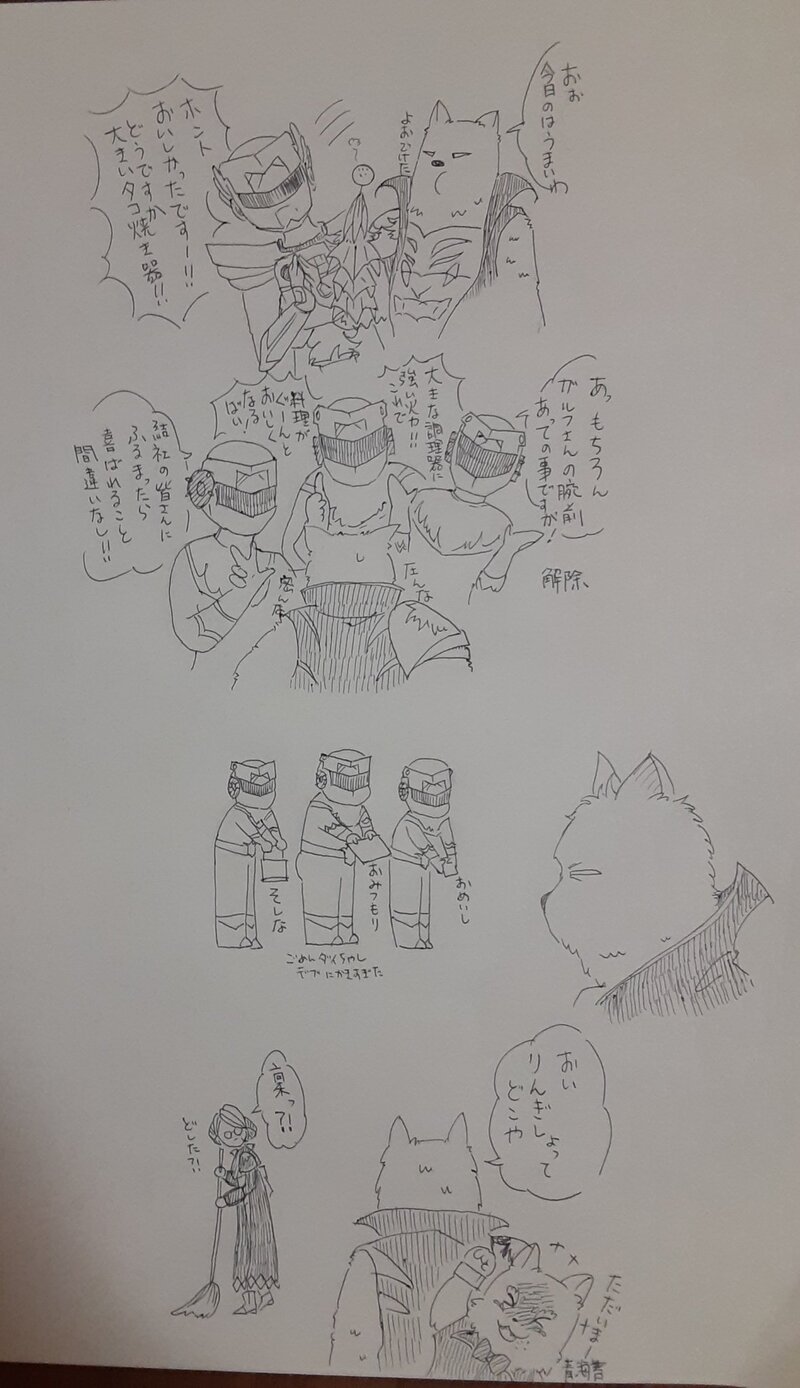 おぉ
今日のはうまいわ
よおひけた
ホント
おいしかったですー!!!
どうですか
大きいタコ焼き器!!!
あっもちろん
ガルフさんの腕前
あっての事ですが!
大きな調理器に
強い火力!!
これで
料理が
ぐーんと
おいしく
なる!
ばい!
結社の皆さんに
ふるまったら
喜ばれること
間違いなし!!!
解除、
おめいし
おみつもり
そしな
ごめんダイちゃし
デブにかきすぎた
おい
りんぎしょって
どこや
稟っ?!!
どした?!!
ただいまー